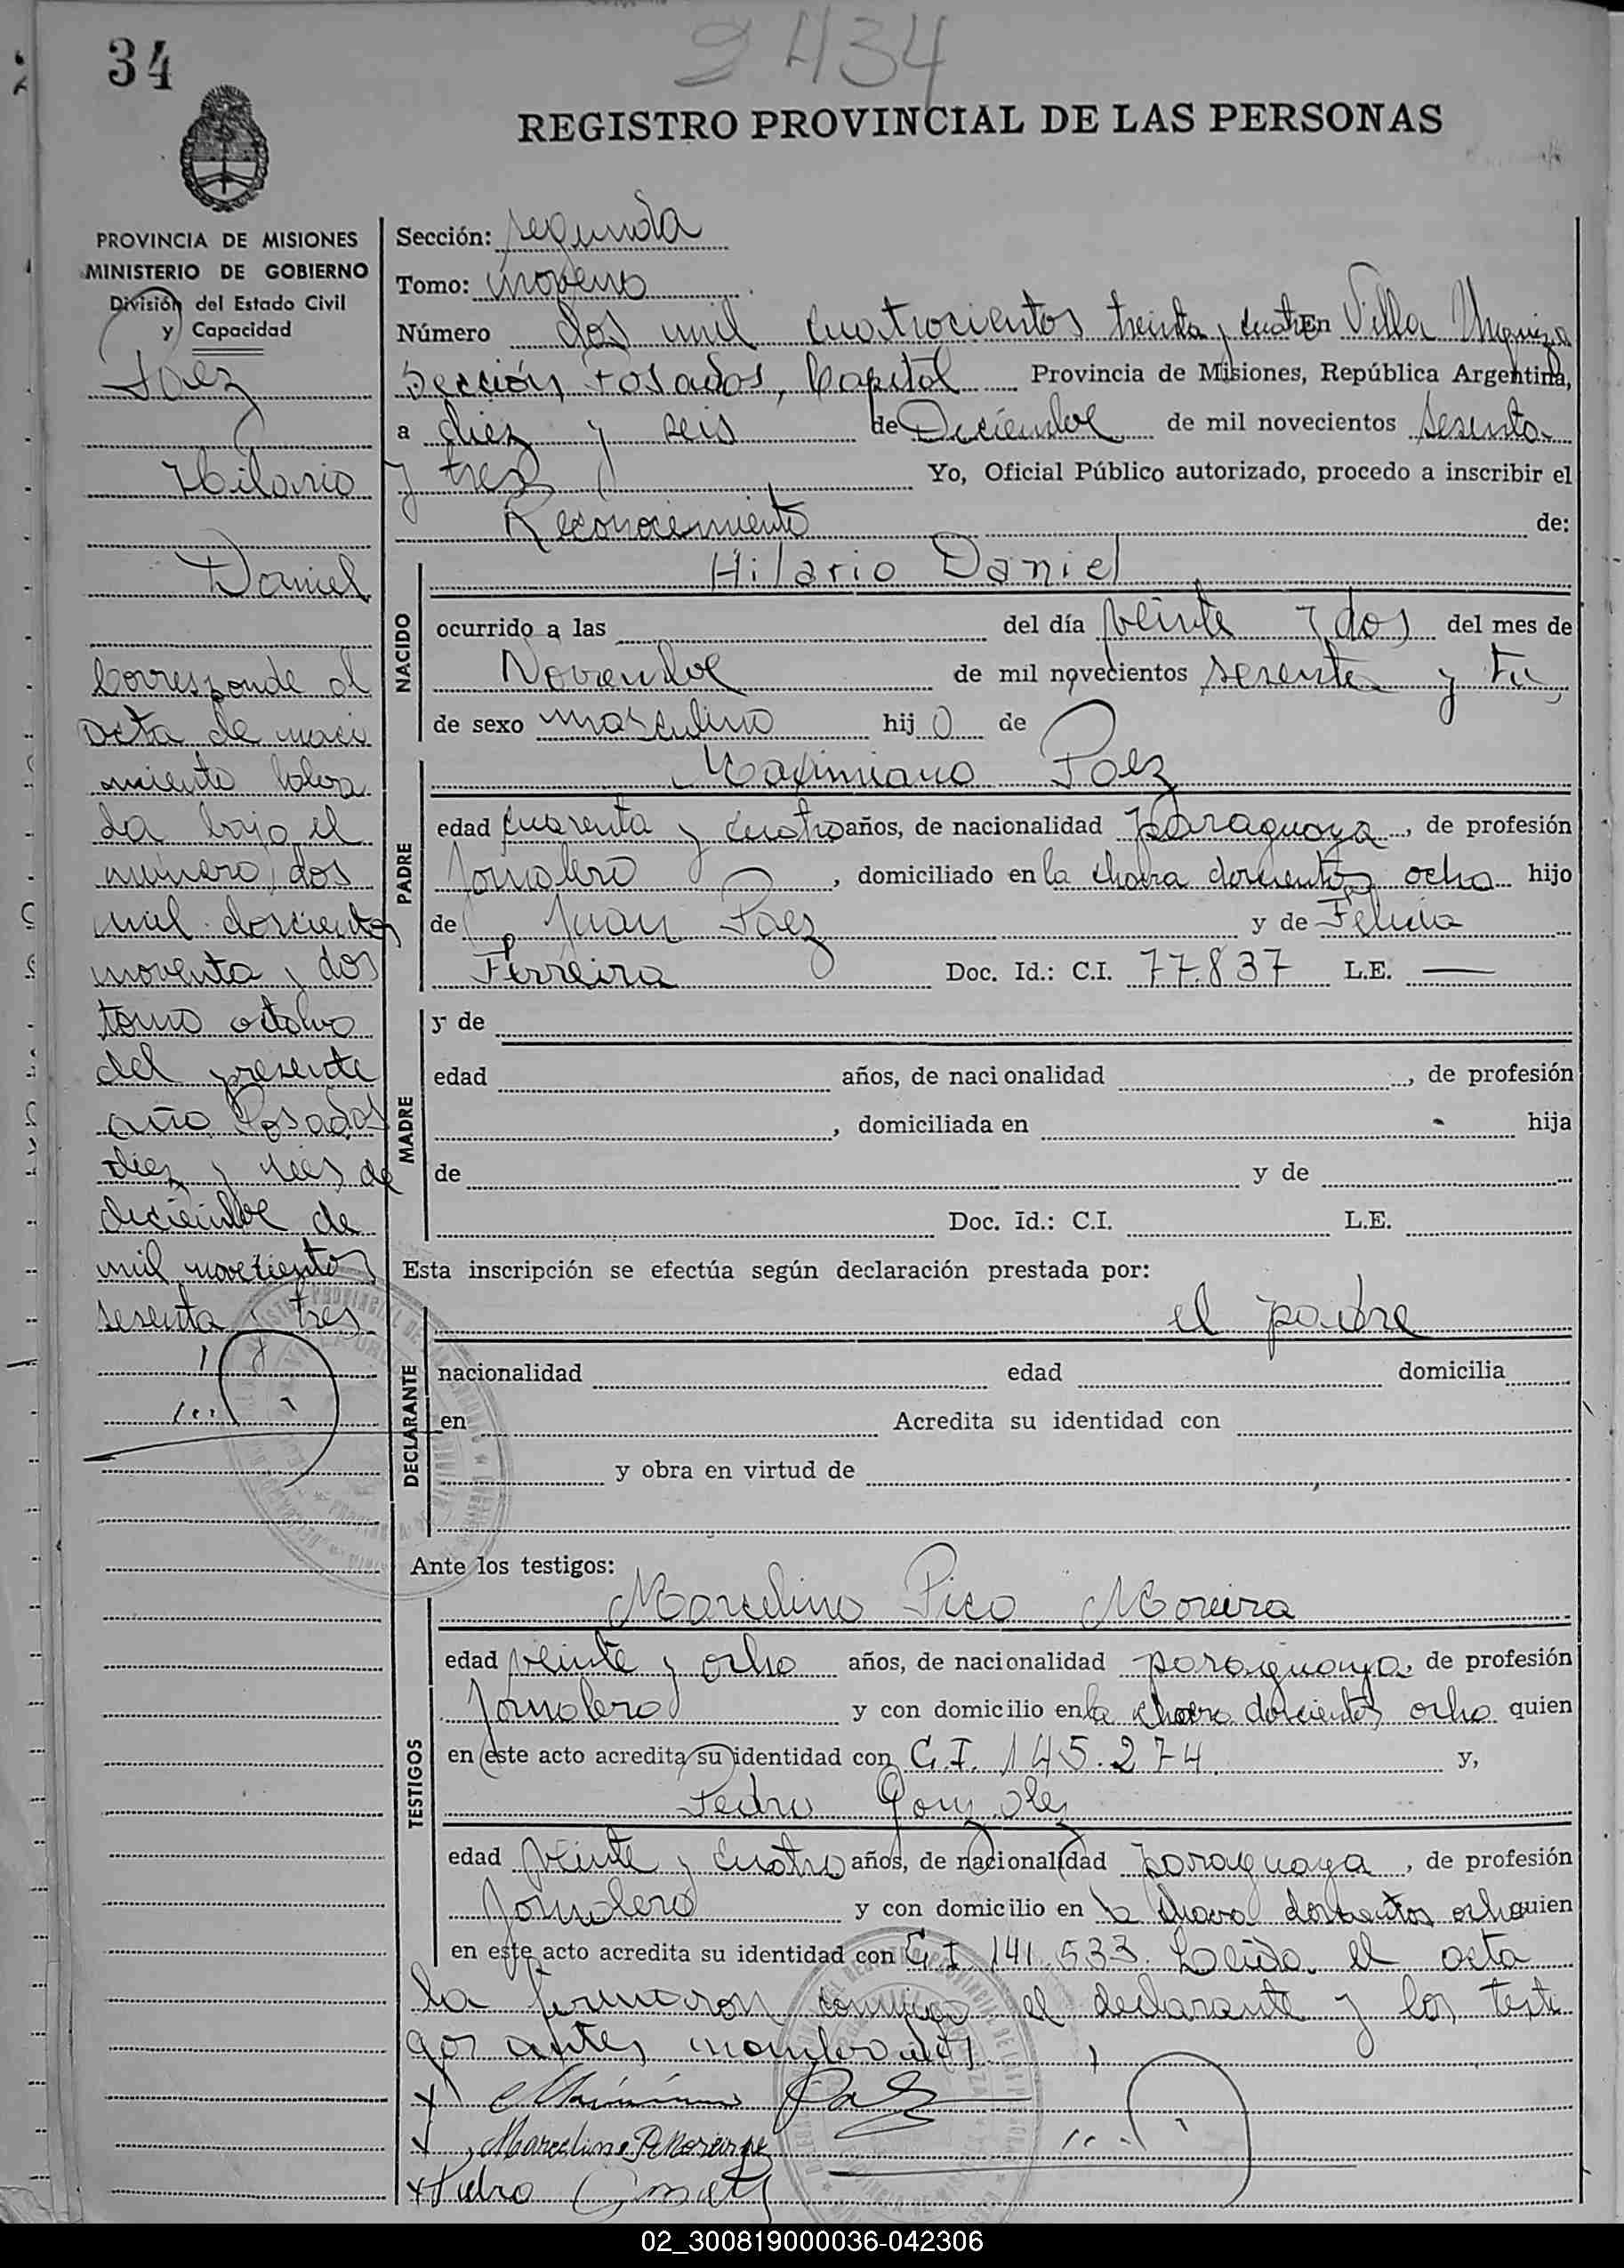 34
2434
REGISTRO PROVINCIAL DE LAS PERSONAS
PROVINCIA DE MISIONES
MINISTERIO DE GOBIERNO
División del Estado Civil
y Capacidad
Paez
Hilario
Daniel
Corresponde al
acta de naci
miento labra
da bajo el
número dos
mil doscientos
noventa y dos
tomo octavo
del presente
año Posadas
diez y seis de
diciembre de
mil novecientos
sesenta y tres
Sección: segunda
Tomo: noveno
Número dos mil cuatrocientos treinta y cuatro En Villa Urquiza
Sección Posadas, Capital Provincia de Misiones, República Argentina,
a diez y seis de Diciembre de mil novecientos sesenta
y tres Yo, Oficial Público autorizado, procedo a inscribir el
Reconocimiento de:
NACIDO
Hilario Daniel
ocurrido a las del día veinte y dos del mes de
Noviembre de mil novecientos sesenta y
de sexo masculino hijo de
PADRE
Maximiano Paez
edad cuarenta y cuatro años, de nacionalidad paraguaya, de profesión
Jornalero, domiciliado en la chacra doscientos ocho hijo
de Juan Paez y de Felicia
Ferreira Doc. Id.: C.I. 77.837 L.E. —
MADRE
y de
edad años, de nacionalidad , de profesión
, domiciliada en hija
de y de
Doc. Id.: C.I. L.E.
Esta inscripción se efectúa según declaración prestada por:
DECLARANTE
el padre
nacionalidad edad domicilia
en Acredita su identidad con
y obra en virtud de
Ante los testigos:
TESTIGOS
Marcelino Pico Moreira
edad veinte y ocho años, de nacionalidad paraguaya, de profesión
Jornalero y con domicilio en la chacra doscientos ocho quien
en este acto acredita su identidad con C.I. 145.274 y,
Pedro Gonzalez
edad veinte y cuatro años, de nacionalidad paraguaya, de profesión
Jornalero y con domicilio en la chacra doscientos ocho quien
en este acto acredita su identidad con C.I. 141.533. Leída el acta
la firmaron conmigo el declarante y los testi
gos antes nombrados
x Paez
x Marcelino P. Moreira
x Pedro
02_300819000036-042306